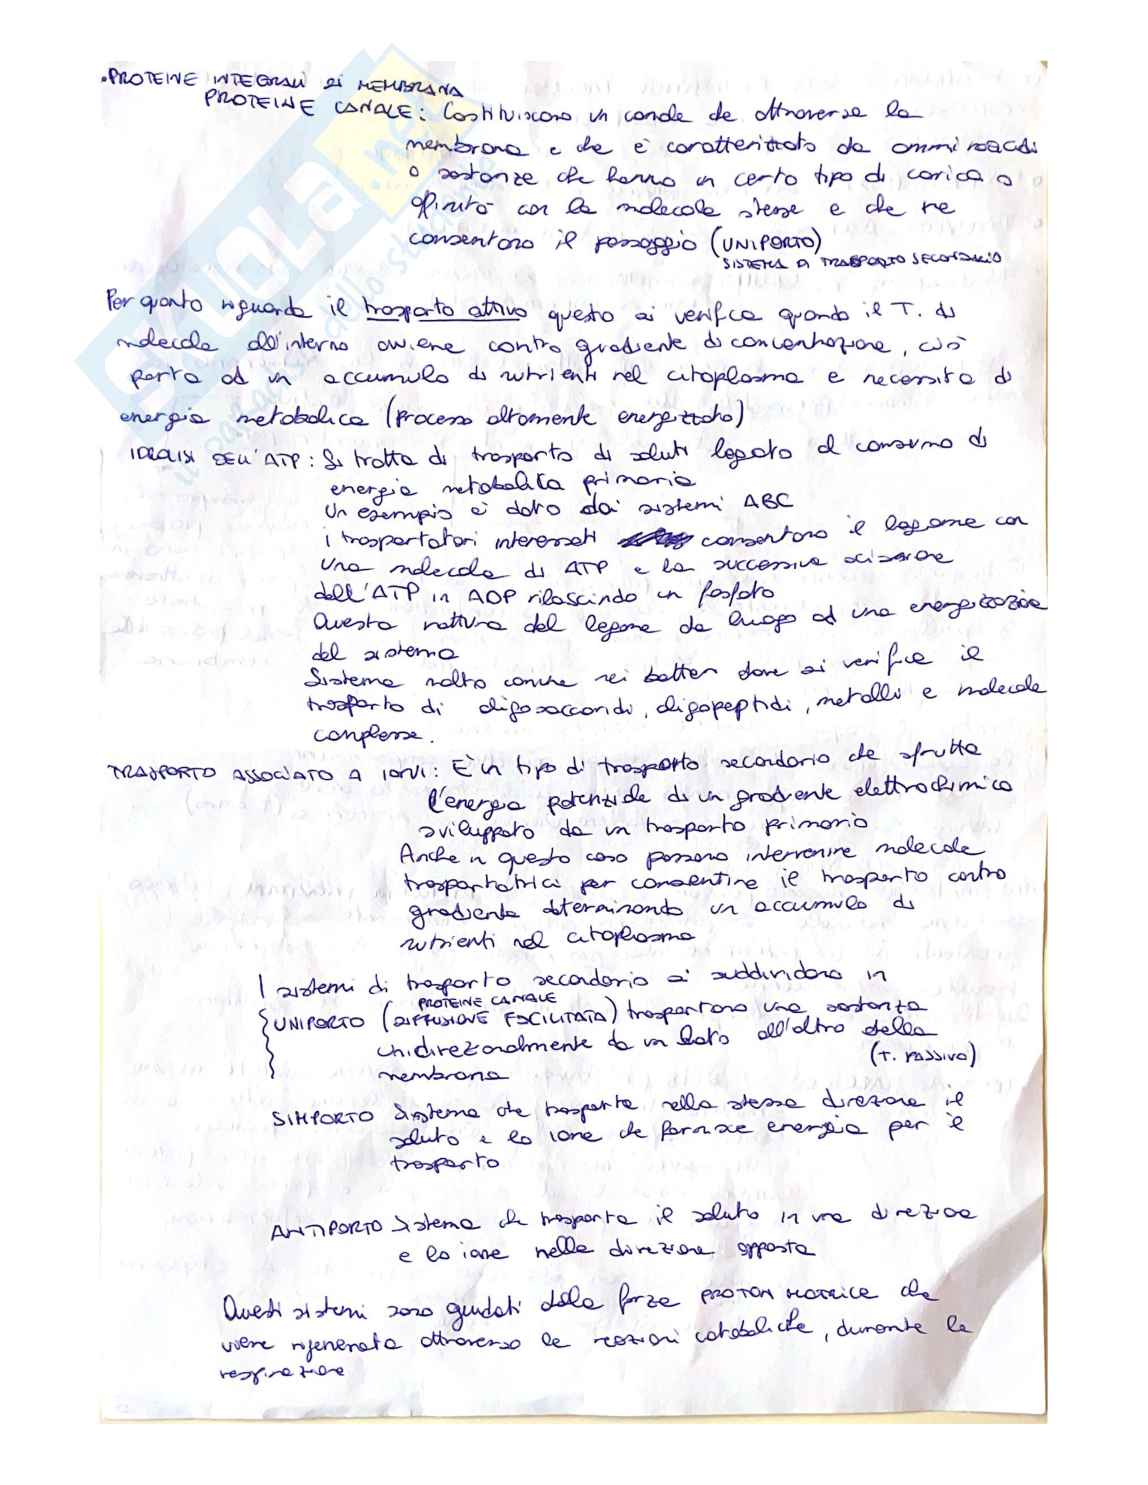 •PROTEINE INTEGRALI DI MEMBRANA
PROTEINE CANALE: Costituiscono un canale che attraversa la
membrana e che è caratterizzato da amminoacidi
o sostanze che hanno un certo tipo di carica o
affinità con le molecole stesse e che ne
consentono il passaggio (UNIPORTO)
SISTEMA DI TRASPORTO SECONDARIO
Per quanto riguarda il trasporto attivo questo si verifica quando il T. di
molecole all'interno avviene contro gradiente di concentrazione, ciò
porta ad un accumulo di nutrienti nel citoplasma e necessita di
energia metabolica (processo altamente energizzato)
IDROLISI DELL'ATP: Si tratta di trasporto di soluti legato al consumo di
energia metabolica primaria
Un esempio è dato dai sistemi ABC
i trasportatori interessati consentono il legame con
una molecola di ATP e la successiva scissione
dell'ATP in ADP rilasciando un fosfato
Questa rottura del legame da luogo ad una energizzazione
del sistema
Sistema molto comune nei batteri dove si verifica il
trasporto di oligosaccaridi, oligopeptidi, metalli e molecole
complesse.
TRASPORTO ASSOCIATO A IONI: È un tipo di trasporto secondario che sfrutta
l'energia potenziale di un gradiente elettrochimico
sviluppato da un trasporto primario
Anche in questo caso possono intervenire molecole
trasportatrici per consentire il trasporto contro
gradiente determinando un accumulo di
nutrienti nel citoplasma
I sistemi di trasporto secondario si suddividono in
PROTEINE CANALE
UNIPORTO (DIFFUSIONE FACILITATA) trasportano una sostanza
unidirezionalmente da un lato all'altro della
(T. PASSIVO)
membrana
SIMPORTO Sistema che trasporta nella stessa direzione il
soluto e lo ione che fornisce energia per il
trasporto
ANTIPORTO Sistema che trasporta il soluto in una direzione
e lo ione nella direzione opposta
Questi sistemi sono guidati dalla forza PROTON MOTRICE che
viene rigenerata attraverso le reazioni cataboliche, durante la
respirazione
SKUOLA.net
il paradiso dello studente